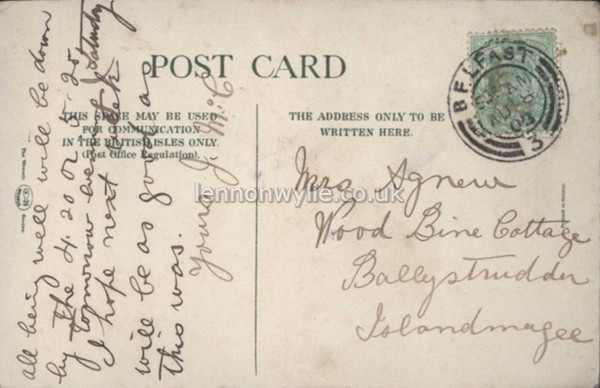 POST CARD
THIS SPACE MAY BE USED
FOR COMMUNICATION
IN THE BRITISH ISLES ONLY.
(Post Office Regulation).
THE ADDRESS ONLY TO BE
WRITTEN HERE.
BELFAST
3
all being well will be down
by the 4.20 or 5.25
tomorrow evening Saturday
I hope next week
will be as good as
this was.
Yours J. McC
Mrs Agnew
Wood Bine Cottage
Ballystrudder
Islandmagee
lennonwylie.co.uk